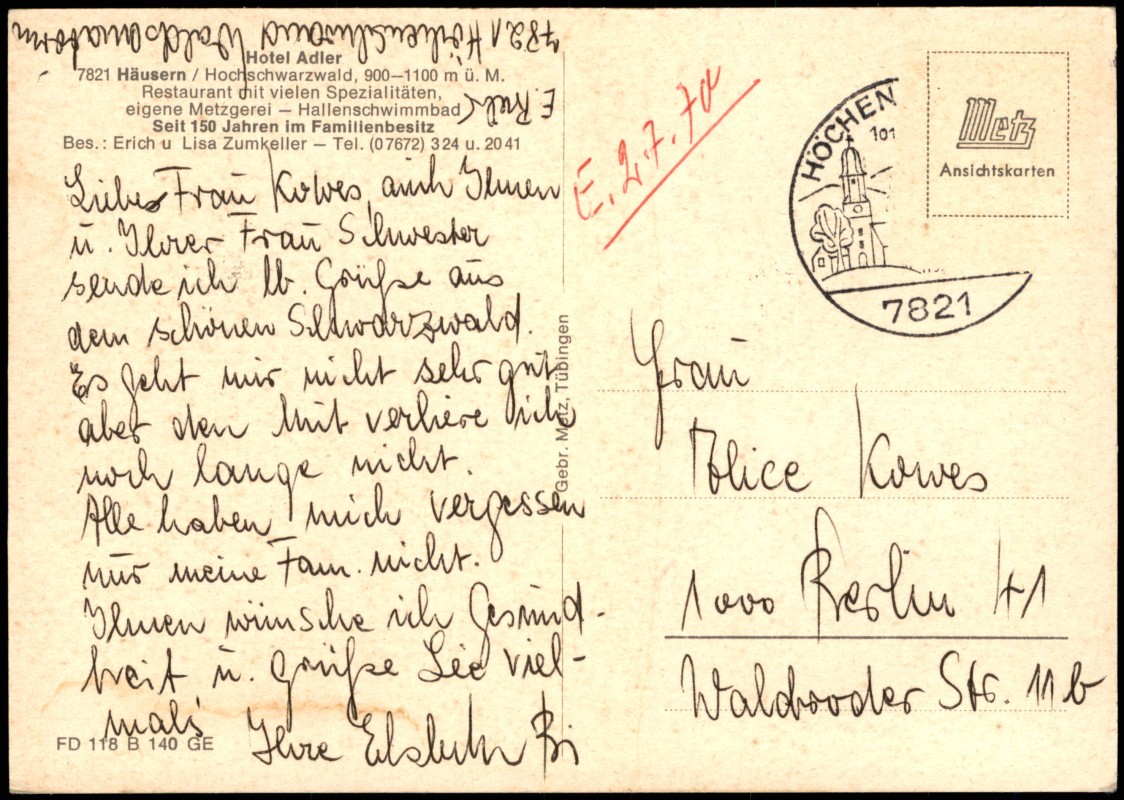 7821 Höchenschwand Waldsanatorium
Hotel Adler
7821 Häusern / Hochschwarzwald, 900–1100 m ü. M.
Restaurant mit vielen Spezialitäten,
eigene Metzgerei – Hallenschwimmbad
Seit 150 Jahren im Familienbesitz
Bes.: Erich u Lisa Zumkeller – Tel. (07672) 324 u. 2041
Liebes Frau Kowes, auch Ihnen
u. Ihrer Frau Schwester
sende ich lb. Grüße aus
dem schönen Schwarzwald.
Es geht mir nicht sehr gut
aber den Mut verliere ich
noch lange nicht.
Alle haben mich vergessen
nur meine Fam. nicht.
Ihnen wünsche ich Gesund-
heit u. grüße Sie viel-
mals
Ihre Elsbeth
FD 118 B 140 GE
Gebr. Metz, Tübingen
E. 2.7.70
HÖCHEN
7821
Metz
Ansichtskarten
Frau
Alice Kowes
1000 Berlin 41
Str. 11 b